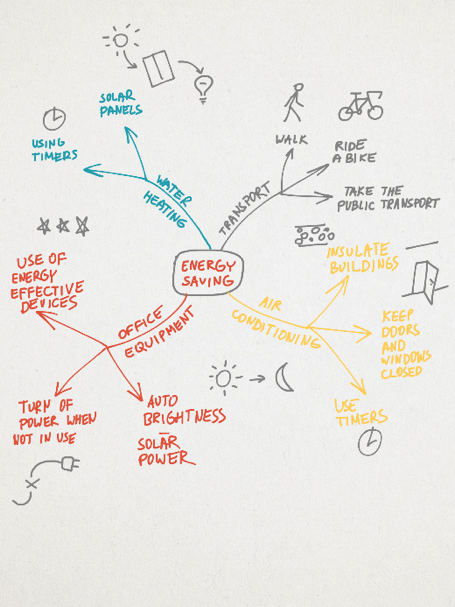 SOLAR
PANELS
USING
TIMERS
WATER
HEATING
WALK
RIDE
A BIKE
TAKE THE
PUBLIC TRANSPORT
TRANSPORT
ENERGY
SAVING
USE OF
ENERGY
EFFECTIVE
DEVICES
OFFICE
EQUIPMENT
TURN OF
POWER WHEN
NOT IN USE
AUTO
BRIGHTNESS
SOLAR
POWER
AIR
CONDITIONING
INSULATE
BUILDINGS
KEEP
DOORS
AND
WINDOWS
CLOSED
USE
TIMERS